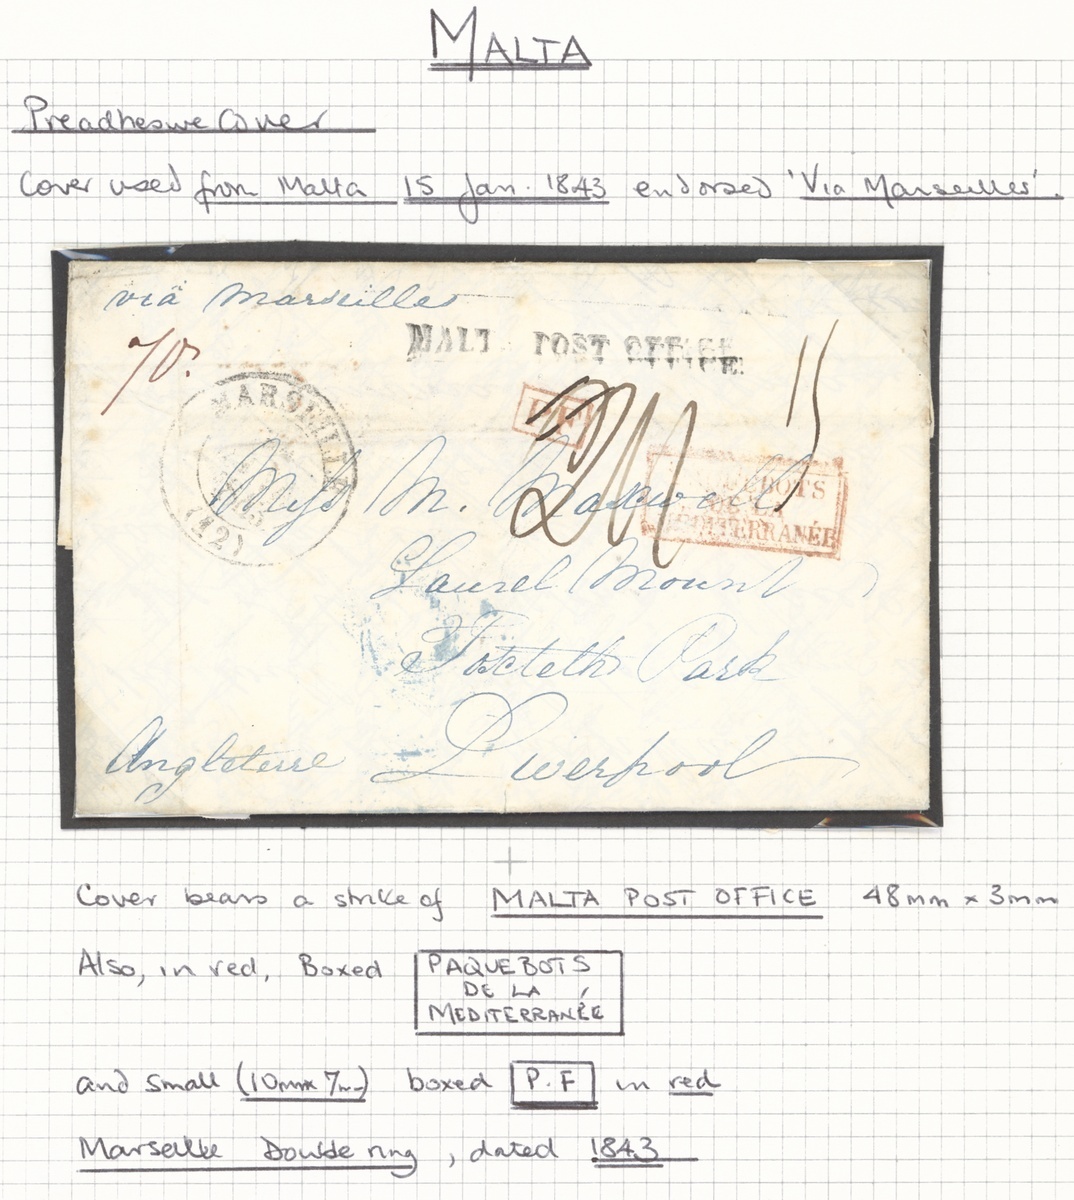 MALTA
Preadhesive Cover
Cover used from Malta 15 Jan. 1843 endorsed 'Via Marseilles'.
via Marseille
MALT POST OFFICE
70.
11
MARSEILLE
(12)
P.F.
PAQUEBOTS
DE LA
MEDITERRANÉE
Miss M. Maxwell
Laurel Mount
Toxteth Park
Liverpool
Angleterre
Cover bears a strike of MALTA POST OFFICE 48mm x 3mm
Also, in red, Boxed PAQUEBOTS
DE LA
MEDITERRANÉE
and small (10mm x 7mm) boxed P.F in red
Marseille Double ring, dated 1843